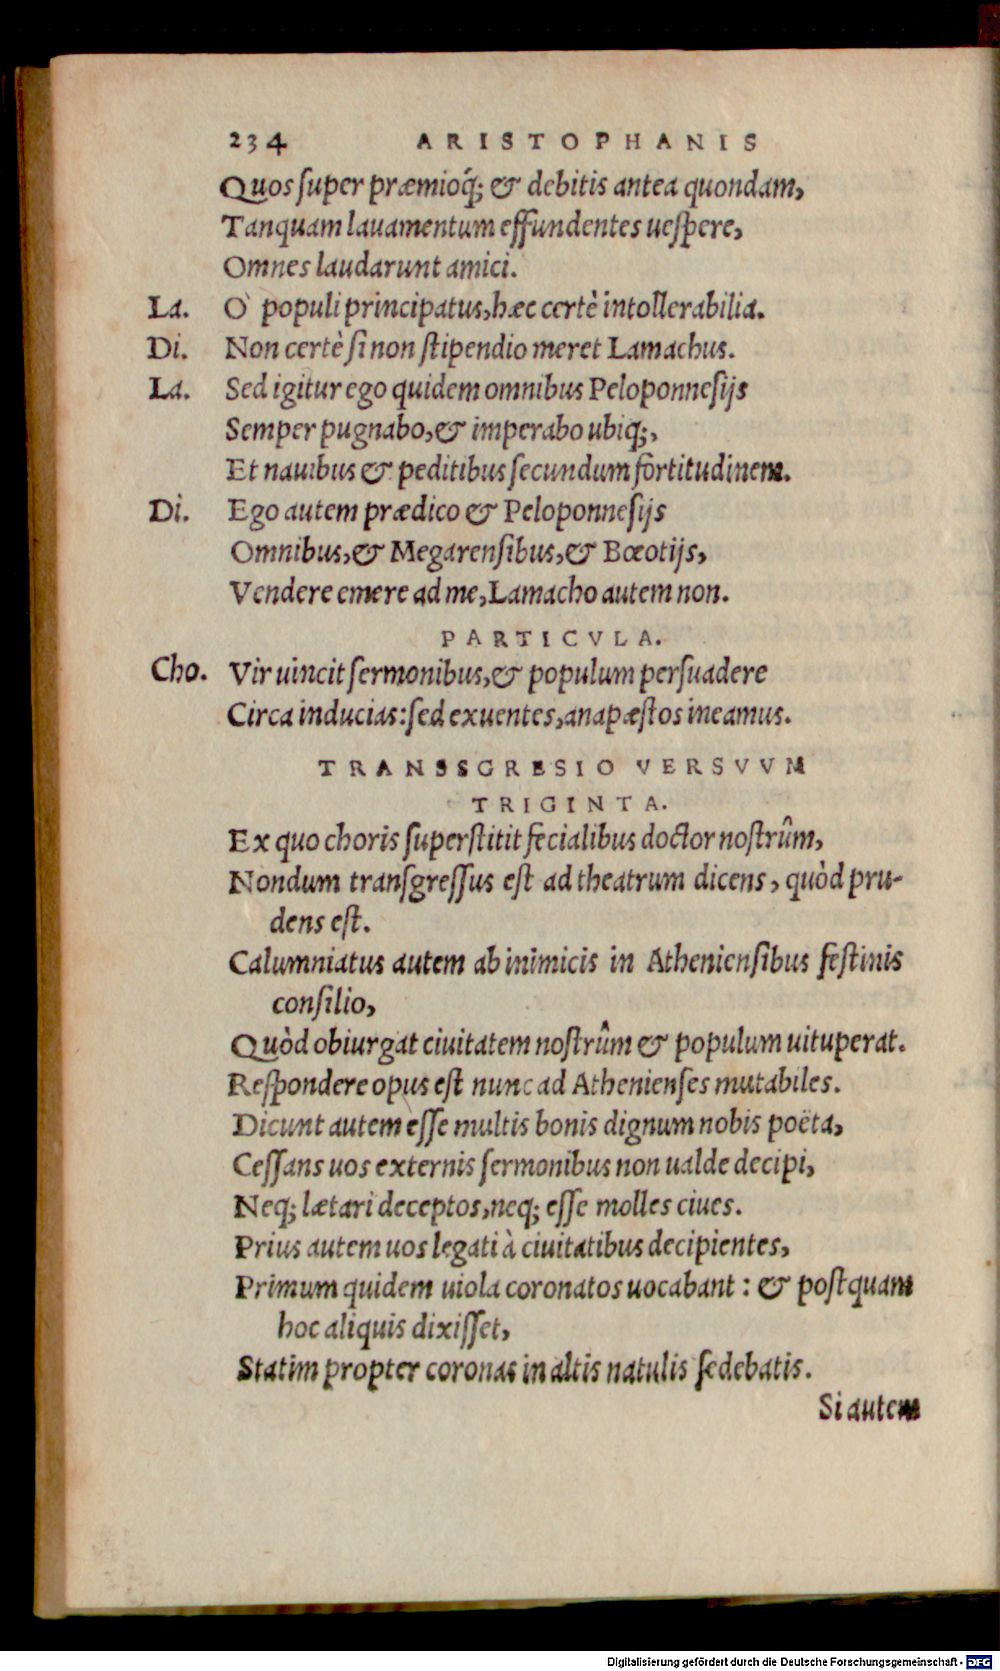 234 ARISTOPHANIS
Quos super præmioq́; & debitis antea quondam,
Tanquam lauamentum effundentes uespere,
Omnes laudarunt amici.
La. O` populi principatus, hæc certè intollerabilia.
Di. Non certè si non stipendio meret Lamachus.
La. Sed igitur ego quidem omnibus Peloponnesijs
Semper pugnabo, & imperabo ubiq;,
Et nauibus & peditibus secundum fortitudinem.
Di. Ego autem prædico & Peloponnesijs
Omnibus, & Megarensibus, & Bœotijs,
Vendere emere ad me, Lamacho autem non.
PARTICVLA.
Cho. Vir uincit sermonibus, & populum persuadere
Circa inducias: sed exuentes, anapæstos ineamus.
TRANSSGRESIO VERSVVM
TRIGINTA.
Ex quo choris superstitit fecialibus doctor nostrûm,
Nondum transgressus est ad theatrum dicens, quòd pru-
dens est.
Calumniatus autem ab inimicis in Atheniensibus festinis
consilio,
Quòd obiurgat ciuitatem nostrûm & populum uituperat.
Respondere opus est nunc ad Athenienses mutabiles.
Dicunt autem esse multis bonis dignum nobis poëta,
Cessans uos externis sermonibus non ualde decipi,
Neq; lætari deceptos, neq; esse molles ciues.
Prius autem uos legati à ciuitatibus decipientes,
Primum quidem uiola coronatos uocabant: & postquam
hoc aliquis dixisset,
Statim propter coronas in altis natulis sedebatis.
Si autem
Digitalisierung gefördert durch die Deutsche Forschungsgemeinschaft - DFG